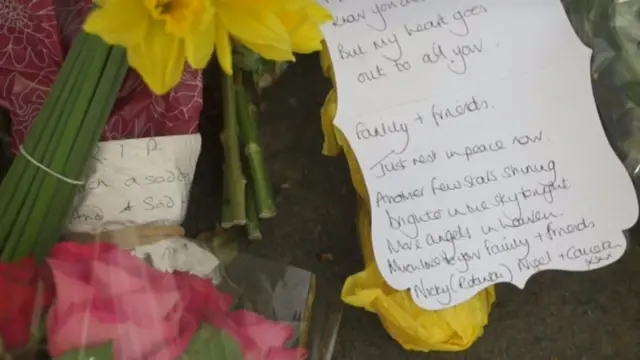 know you
But my heart goes
out to all you
Family + friends.
Just rest in peace now.
Another few stars shining
brighter in the sky tonight
More angels in heaven.
Much love to your family + friends
Nicky (Robinson) Nigel +
xxx
R.I.P.
such a sad
And a sad